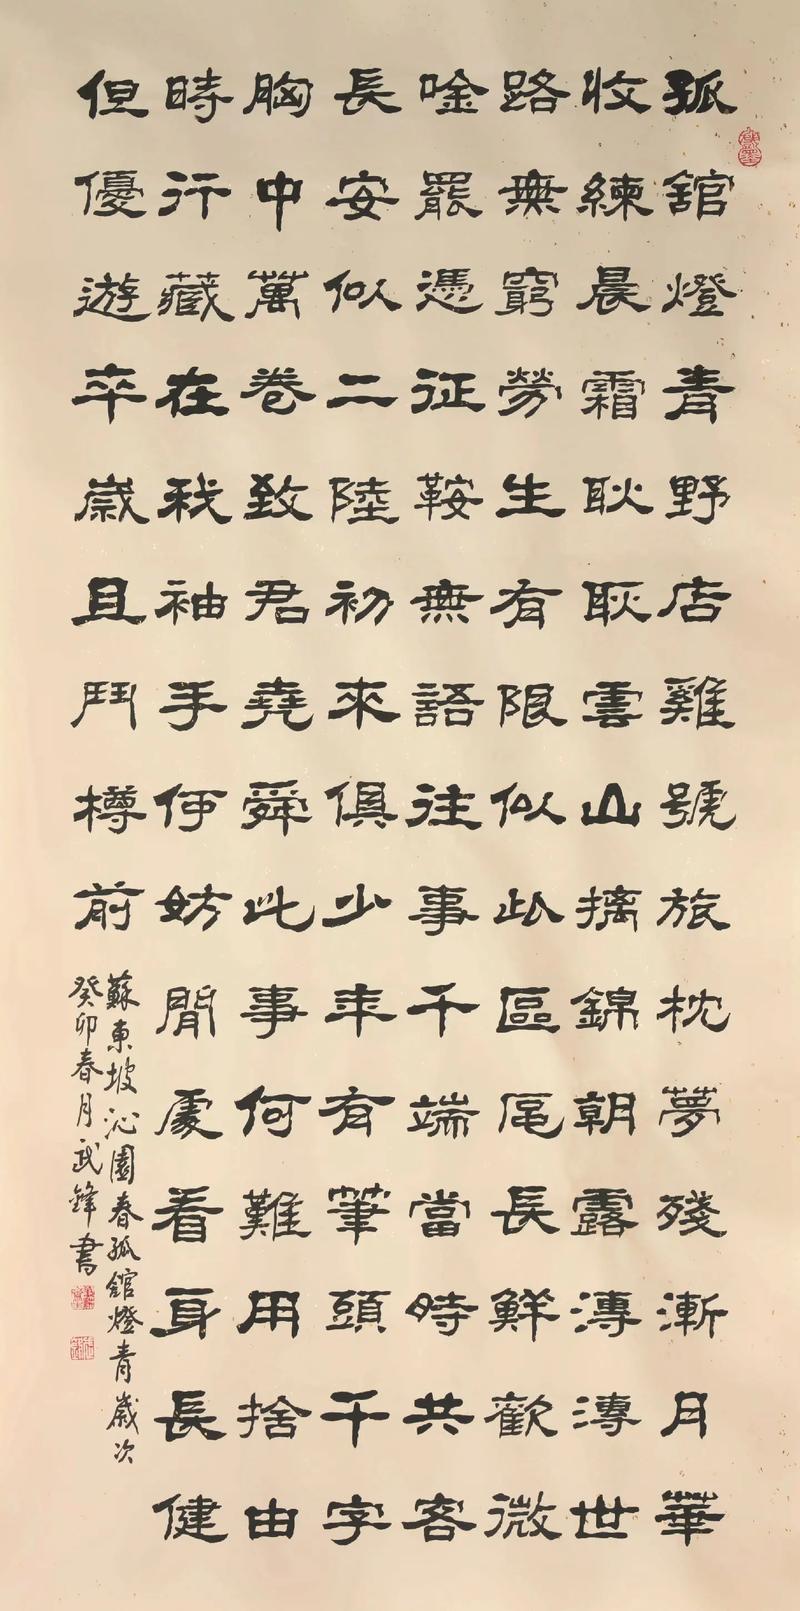 孤舘燈青野店雞號旅枕夢殘漸月華
收練晨霜耿耿雲山摛錦朝露漙漙世
路無窮勞生有限似此區區長鮮歡微
唫罷憑征鞍無語往事千端當時共客
長安似二陸初來俱少年有筆頭千字
胸中萬卷致君堯舜此事何難用捨由
時行藏在我袖手何妨閒處看身長健
但優遊卒歲且鬥樽前
蘇東坡沁園春孤舘燈青歲次
癸卯春月武鋒書